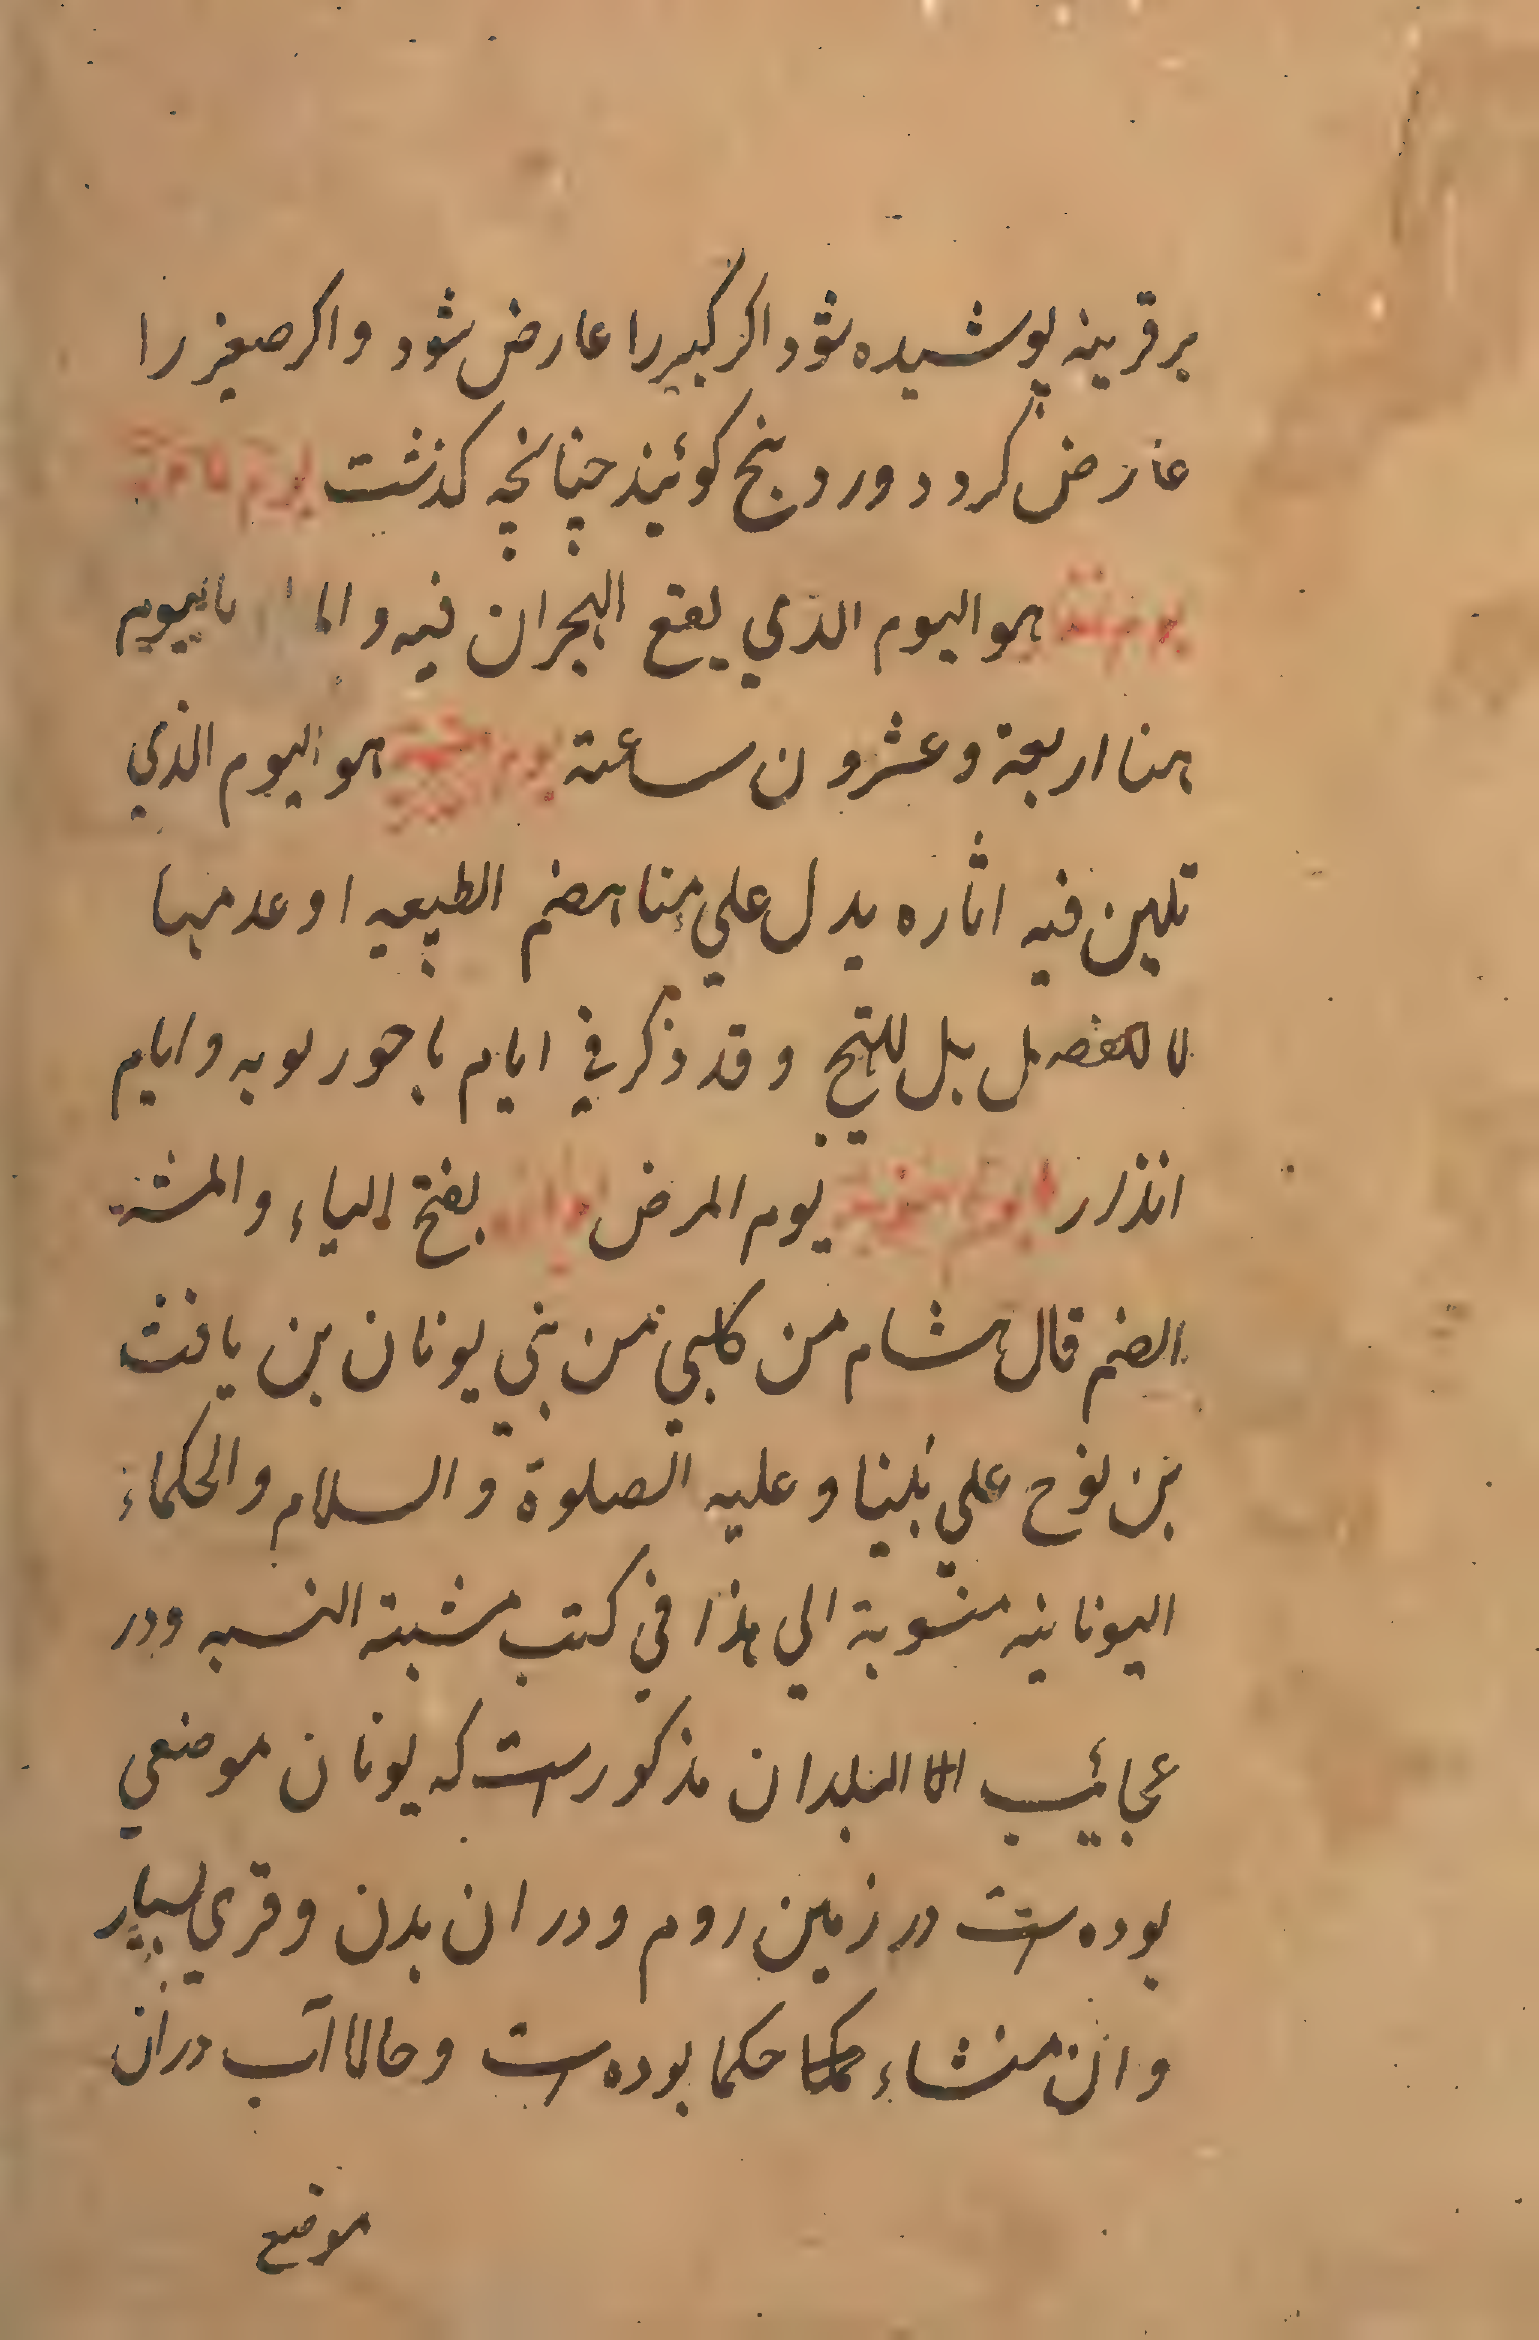 بر قرینه پوشیده شود اکر کبیر را عارض شود و اکر صغیر را
عارض کردد وردینج کوئیند چنانچه کذشت
هو الیوم الذي یقع البحران فیه و الما بالیوم
هنا اربعة و عشرون ساعة هو الیوم الذي
تلین فیه اثاره یدل علي مناهضم الطبیعیه او عدمها
لا للفصل بل للتج و قد ذکر في ایام باحوریه و ایام
انذار یوم المرض بفتح الیاء و المشنه
الضم قال هشام من کلبي من بني یونان بن یافث
بن نوح علي نبینا و علیه الصلوة و السلام و الحکماء
الیونانیه منسوبة الي هذا في کتب مشبته النسبه ودر
عجائیب البلدان مذکورست که یونان موضعي
بوده ست در زمین روم ودر ان بدن و قري بسیار
و ان منشاء حکما بوده ست و حالا آب دران
موضع